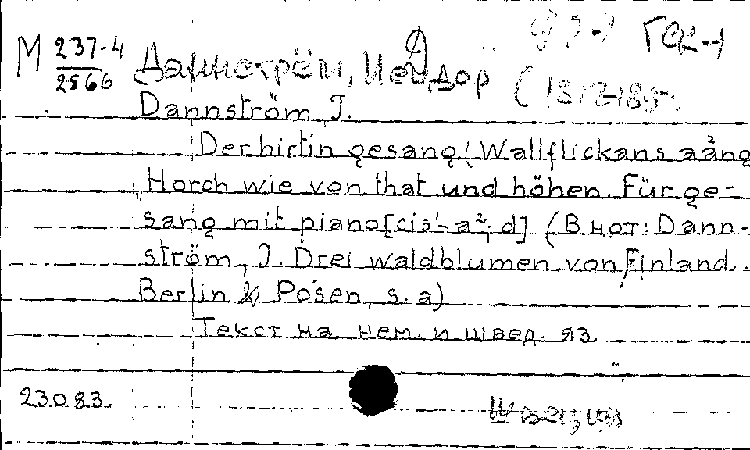 М 237-4
2566
Даннстрём, Исидор
Dannström, J.
Der hirtin gesang (Wallflickans sång
Horch wie von that und höhen. Für ge-
sang mit piano [cis¹-a², d] (В нот: Dann-
ström, J. Drei waldblumen von Finland.
Berlin & Posen, s. a)
Текст на нем. и швед. яз.
23.0.83.
Швеция